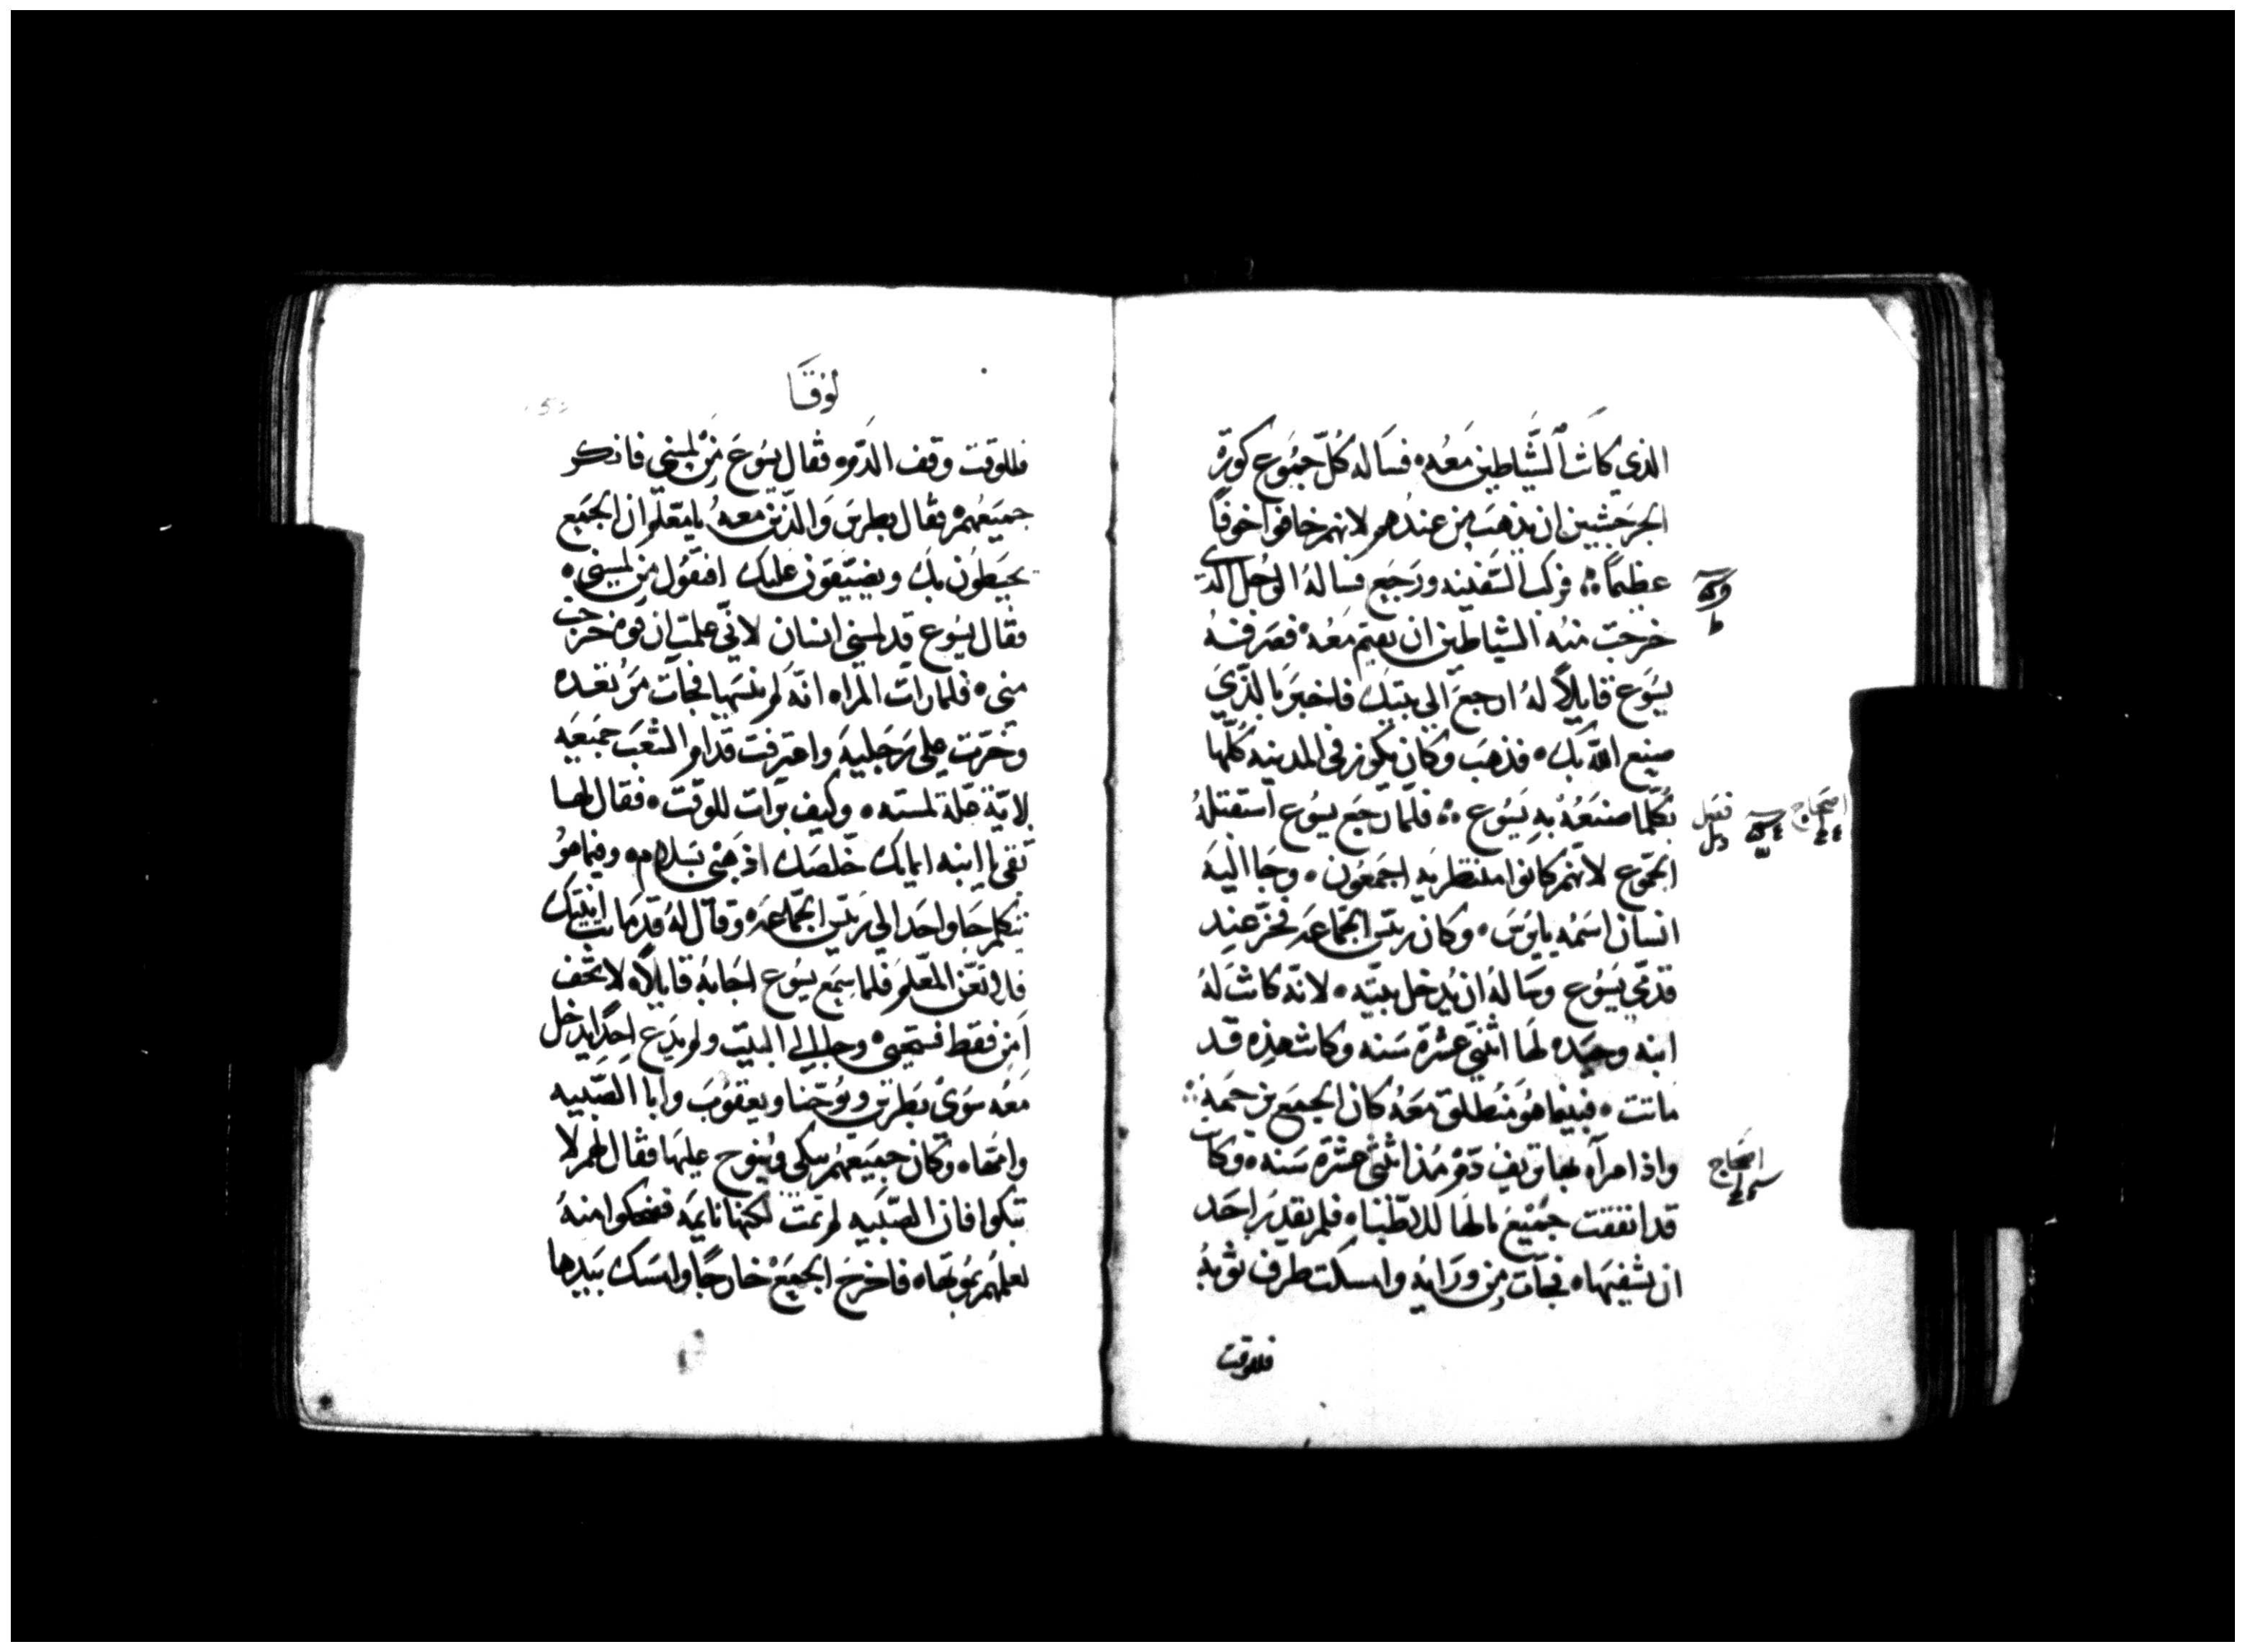 الذي كانت الشياطين معه فساله كل جموع كورة
الجرجسيين ان يذهب من عندهم لانهم خافوا خوفا
عظيما فركب السفينه ورجع فساله الرجل الذي
خرجت منه الشياطين ان يقيم معه فصرفه
يسوع قايلا له ارجع الي بيتك فاخبر بالذي
صنيع الله بك فذهب وكان يكرز في المدينه كلها
بكلما صنعه به يسوع فلما رجع يسوع استقبله
الجموع لانهم كانوا منتظريه اجمعون وجا اليه
انسان اسمه يايرس وكان ريس الجماعه فخر عند
قدمي يسوع وساله ان يدخل بيته لانه كانت له
ابنه وحيده لها اثنتي عشرة سنه وكانت هذه قد
ماتت فبينما هو منطلق معه كان الجميع يزحمه
واذا امرآه بها نزيف دم مذ اثنتي عشرة سنه وكانت
قد انفقت جميع مالها للاطبا فلم يقدر احد
ان يشفيها فجآت من ورايه وامسكت طرف ثوبه
فللوقت
فصل
اصحاح
اصحاح
لوقا
فللوقت وقف الدم فقال يسوع من لمسني فانكر
جميعهم فقال بطرس والذين معه يا معلم ان الجميع
يحيطون بك ويضيقون عليك افتقول من لمسني
فقال يسوع قد لمسني انسان لاني علمت ان قوه خرجت
مني فلما رات المراه انه لم ينسها فجآت مرتعده
وخرت علي رجليه واعترفت قدام الشعب جميعه
لاية علة لمسته وكيف برات للوقت فقال لها
ثقي يا ابنه ايمانك خلصك اذهبي بسلام وفيما هو
يتكلم جا واحد الي ريس الجماعه وقال له قد ماتت ابنتك
فلا تعن المعلم فلما سمع يسوع اجابه قايلا لا تخف
امن فقط فستحيي وجا الي البيت ولم يدع احدا يدخل
معه سوي بطرس ويوحنا ويعقوب وابا الصبيه
وامها وكان جميعهم يبكي وينوح عليها فقال لهم لا
تبكوا فان الصبيه لم تمت لكنها نايمه فضحكوا منه
لعلمهم بموتها فاخرج الجميع خارجا وامسك بيدها